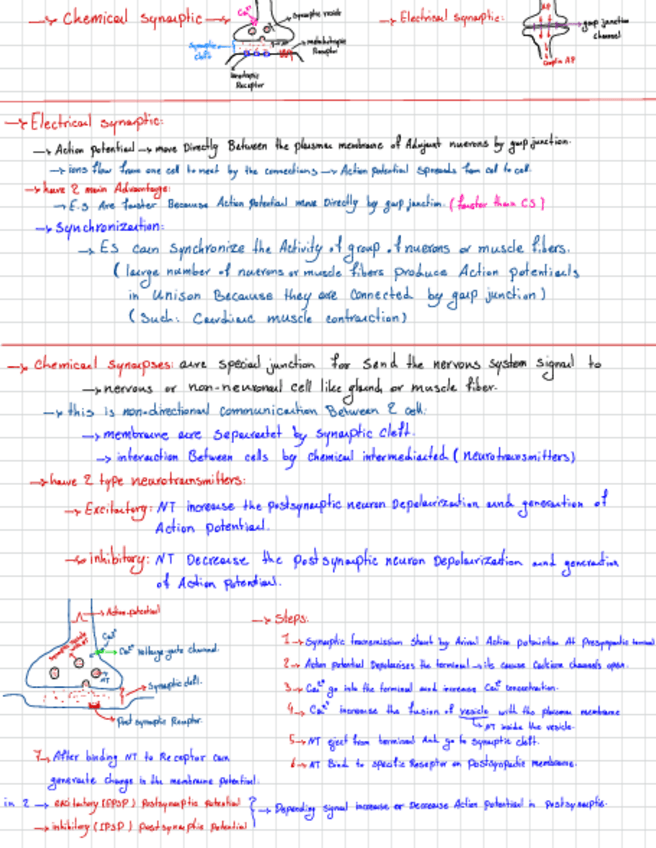 → Chemical synaptic →
Ca²⁺
Synaptic vesicle
Synaptic cleft
metabotropic Receptor
ionotropic Receptor
→ Electrical synaptic:
AP
gap junction channel
→ Electrical synaptic:
→ Action potential → move Directly Between the plasma membrane of Adjuant nuerons by gap junction.
→ ions flow from one cell to next by the connections → Action potential spreads from cell to cell.
→ have 2 main Advantage:
→ E.S Are faster Because Action Potential move Directly by gap junction. (faster than CS)
→ Synchronization:
→ ES can Synchronize the Activity of group of nuerons or muscle fibers.
(large number of nuerons or muscle fibers produce Action potentials
in Unison Because they are Connected by gap junction)
(Such: Cardiac muscle contraction)
→ Chemical synapses: are special junction for send the nervous system signal to
→ nervous or non-neuronal cell like gland or muscle fiber.
→ this is non-directional communication Between 2 cell:
→ membrane are separatet by synaptic cleft.
→ interaction Between cells by chemical intermediated (neurotransmitters)
→ have 2 type neurotransmitters:
→ Excitatory: NT increase the postsynaptic neuron Depolarization and generation of
Action potential.
→ inhibitory: NT Decrease the postsynaptic neuron Depolarization and generation
of Action Potential.
→ Action potential
Ca²⁺
→ Ca²⁺ voltage-gate channel.
NT
→ Synaptic cleft.
→ Post synaptic Receptor.
→ Steps:
1 → Synaptic transmission start by Arival Action potential At Presynaptic terminal
2 → Action potential Depolarises the terminal → its cause Calcium channels open.
3 → Ca²⁺ go into the terminal and increase Ca²⁺ concentration.
4 → Ca²⁺ increase the fusion of vesicle with the plasma membrane
→ NT inside the vesicle.
5 → NT eject from terminal And go to synaptic cleft.
6 → NT Bind to specific Receptor on Postsynaptic membrane.
7 → After binding NT to Receptor can
generate change in the membrane potential:
in 2 → excitatory (EPSP) Postsynaptic potential
→ inhibitory (IPSP) postsynaptic potential
→ Depending signal increase or Decrease Action potential in postsynaptic.